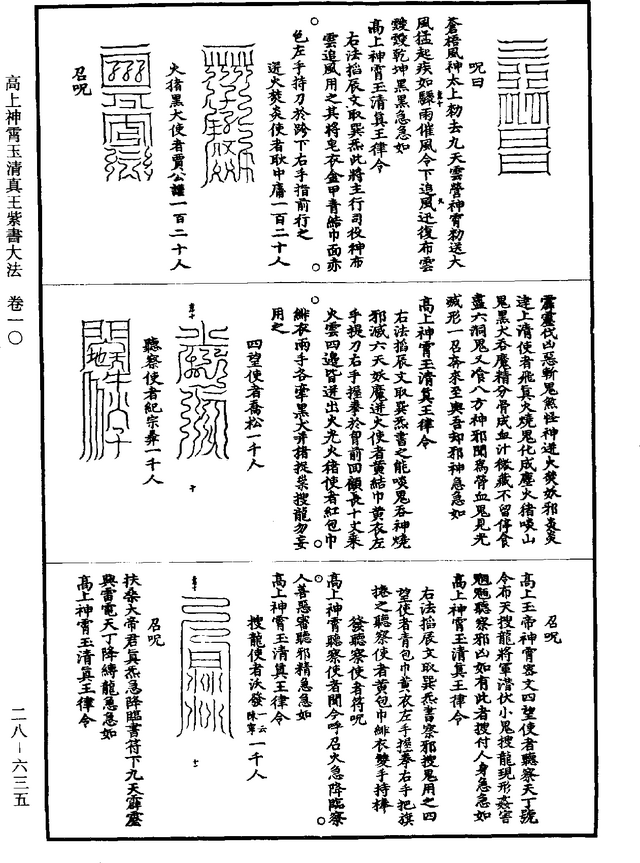 高上神霄玉清真王紫書大法 卷一〇
二八－六三五
呪曰
蒼梧風神太上勑去九天雲營神霄勑送大
風猛起疾如驟雨催風令下追風迅復布雲
靉靆乾坤黑黑急急如
高上神霄玉清真王律令
右法掐辰文取巽炁此將主行司役神布
雲追風用之其將皂衣金甲青結巾面赤
色左手持刀於跨下右手指前行之
迸火熒炎使者耿中庸一百二十人
火猪黑犬使者賈公謹一百二十人
召呪
霹靂伐凶惡斬鬼煞怪神迸火焚妖邪炎炎
達上清使者飛真火燒鬼化成塵火猪啖山
鬼黑犬吞魔精分骨成血汁微藏不留停食
盡六洞鬼又飡八方神邪聞寫骨血鬼見光
滅形一召奔來至與吾却邪神急急如
高上神霄玉清真王律令
右法掐辰文取巽炁書之能啖鬼吞神燒
邪滅六天妖魔迸火使者黄結巾黄衣左
手提刀右手握拳於胷前回顧長十丈乘
火雲四邊皆迸出火光火猪使者紅包巾
緋衣兩手各牽黑犬并猪捉祟搜龍勿妄
用之
四望使者喬松一千人
聽察使者紀宗彝一千人
召呪
高上玉帝神霄寄文四望使者聽察天丁號
令布天搜龍將軍潜伏小鬼搜龍現形姦害
魍魎聽察邪凶如有此者搜付人身急急如
高上神霄玉清真王律令
右法掐辰文取巽炁書察邪搜鬼用之四
望使者青包巾黄衣左手握拳右手把旗
捲之聽察使者黄包巾緋衣雙手持棒
發聽察使者符呪
高上神霄聽察使者聞今呼召火急降臨察
人善惡審聽邪精急急如
高上神霄玉清真王律令
搜龍使者沃發一云陳寧一千人
召呪
扶桑大帝君真炁急降臨書符下九天霹靂
興雷電天丁降縛龍急急如
高上神霄玉清真王律令